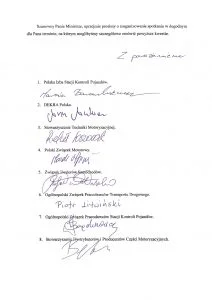 Szanowny Panie Ministrze, uprzejmie prosimy o zorganizowanie spotkania w dogodnym
dla Pana terminie, na którym moglibyśmy szczegółowo omówić powyższe kwestie.
Z poważaniem
1. Polska Izba Stacji Kontroli Pojazdów.
2. DEKRA Polska.
3. Stowarzyszenie Techniki Motoryzacyjnej.
4. Polski Związek Motorowy.
5. Związek Dealerów Samochodów.
6. Ogólnopolski Związek Pracodawców Transportu Drogowego.
Piotr Litwiński
7. Ogólnopolski Związek Pracodawców Stacji Kontroli Pojazdów.
8. Stowarzyszenie Dystrybutorów i Producentów Części Motoryzacyjnych.